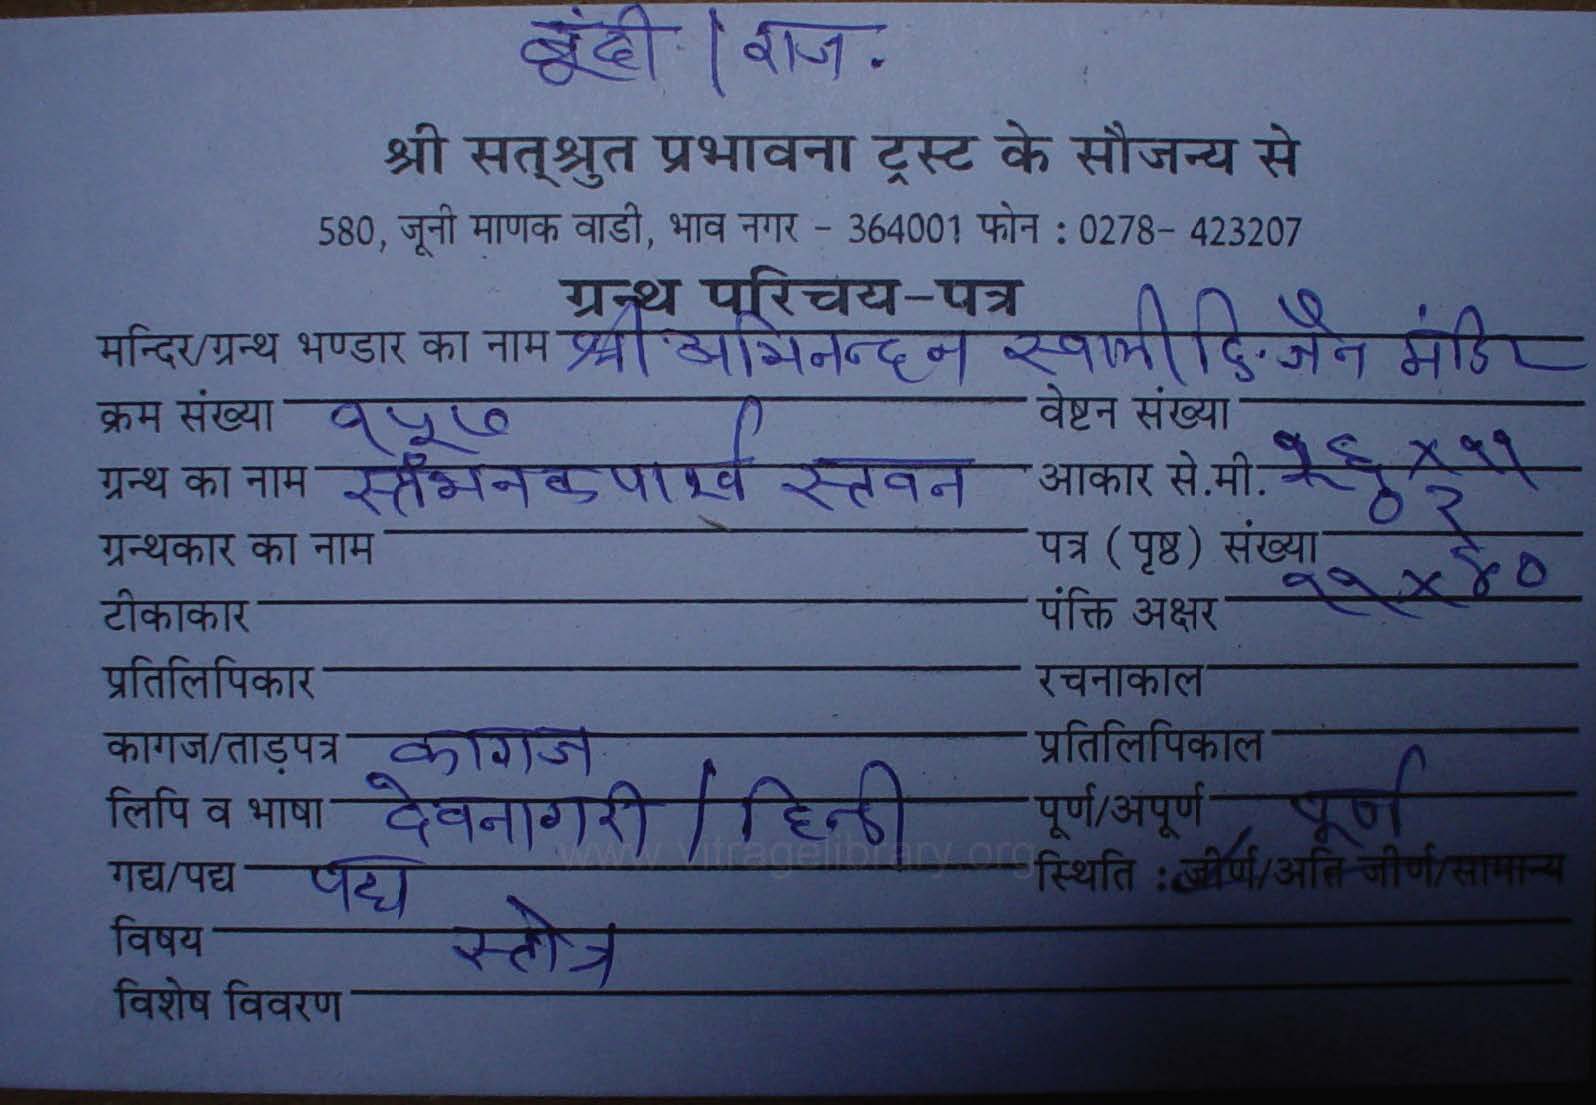 बूंदी / राज.
श्री सत्श्रुत प्रभावना ट्रस्ट के सौजन्य से
580, जूनी माणक वाडी, भाव नगर - 364001 फोन : 0278- 423207
ग्रन्थ परिचय-पत्र
मन्दिर/ग्रन्थ भण्डार का नाम श्री अभिनन्दन स्वामी दि. जैन मंदिर
क्रम संख्या १५७ वेष्टन संख्या
ग्रन्थ का नाम स्तंभनकपार्श्व स्तवन आकार से.मी. २६ x ११
ग्रन्थकार का नाम पत्र (पृष्ठ) संख्या ०२
टीकाकार पंक्ति अक्षर ११ x ४०
प्रतिलिपिकार रचनाकाल
कागज/ताड़पत्र कागज प्रतिलिपिकाल
लिपि व भाषा देवनागरी / हिन्दी पूर्ण/अपूर्ण पूर्ण
गद्य/पद्य पद्य स्थिति : जीर्ण/अति जीर्ण/सामान्य
विषय स्तोत्र
विशेष विवरण
www.vitragelibrary.org